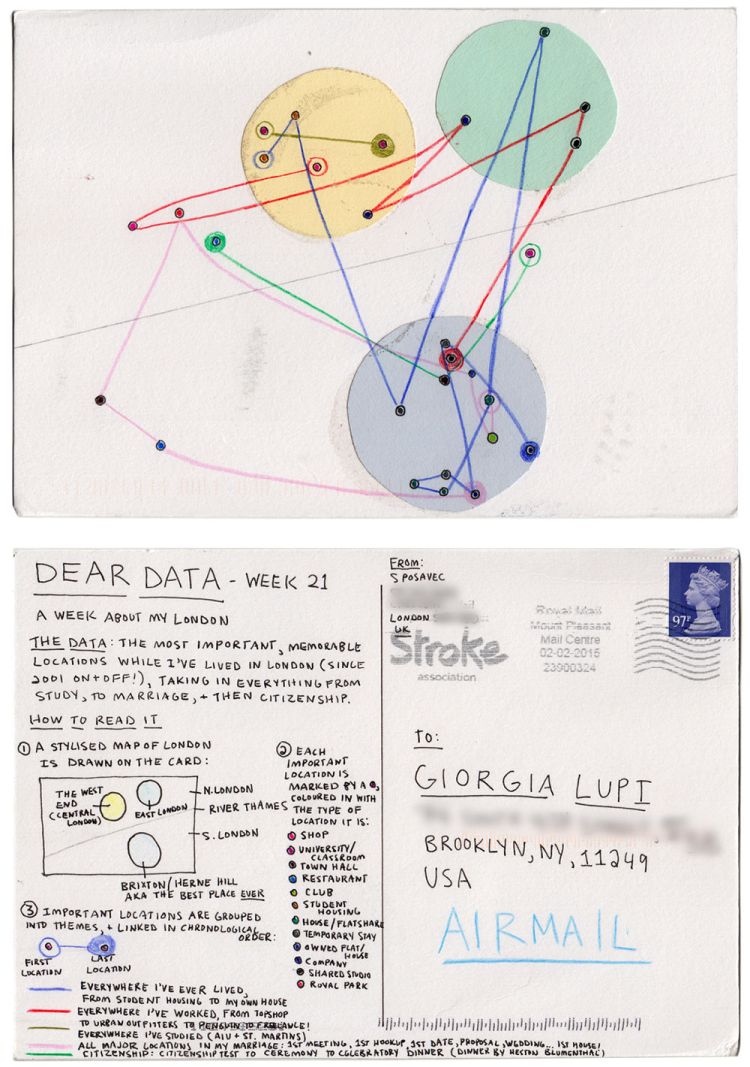 DEAR DATA - WEEK 21
A WEEK ABOUT MY LONDON
THE DATA: THE MOST IMPORTANT, MEMORABLE
LOCATIONS WHILE I'VE LIVED IN LONDON (SINCE
2001 ON + OFF!), TAKING IN EVERYTHING FROM
STUDY, TO MARRIAGE, + THEN CITIZENSHIP.
HOW TO READ IT
① A STYLISED MAP OF LONDON
IS DRAWN ON THE CARD:
THE WEST
END
(CENTRAL
LONDON)
EAST LONDON
N. LONDON
RIVER THAMES
S. LONDON
BRIXTON/HERNE HILL
AKA THE BEST PLACE EVER
② EACH
IMPORTANT
LOCATION IS
MARKED BY A
COLOURED IN WITH
THE TYPE OF
LOCATION IT IS:
SHOP
UNIVERSITY/
CLASSROOM
TOWN HALL
RESTAURANT
CLUB
STUDENT
HOUSING
HOUSE/FLATSHARE
TEMPORARY STAY
OWNED FLAT/
HOUSE
COMPANY
SHARED STUDIO
ROYAL PARK
③ IMPORTANT LOCATIONS ARE GROUPED
INTO THEMES, + LINKED IN CHRONOLOGICAL
ORDER:
FIRST
LOCATION
LAST
LOCATION
EVERYWHERE I'VE EVER LIVED,
FROM STUDENT HOUSING TO MY OWN HOUSE
EVERYWHERE I'VE WORKED, FROM TOPSHOP
TO URBAN OUTFITTERS TO PENGUIN TO FREELANCE!
EVERYWHERE I'VE STUDIED (AIU + ST. MARTINS)
ALL MAJOR LOCATIONS IN MY MARRIAGE: 1ST MEETING, 1ST HOOKUP, 1ST DATE, PROPOSAL, WEDDING... 1ST HOUSE!
CITIZENSHIP: CITIZENSHIP TEST TO CEREMONY TO CELEBRATORY DINNER (DINNER BY HESTON BLUMENTHAL)
FROM:
S POSAVEC
LONDON
UK
Stroke
association
Royal Mail
Mount Pleasant
Mail Centre
02-02-2015
23900324
97P
TO:
GIORGIA LUPI
BROOKLYN, NY, 11249
USA
AIRMAIL